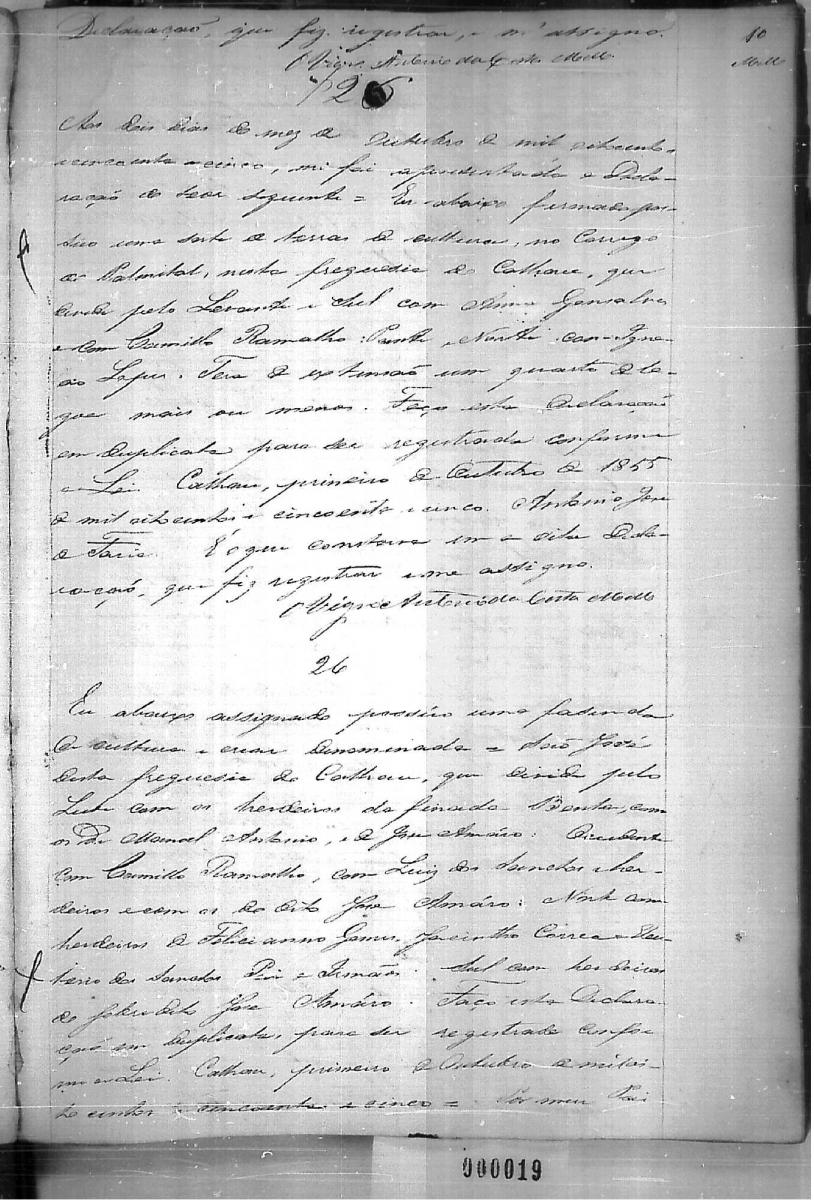 Declaração, que fiz registrar, e m' assigno.
10
O Vigrº Antonio da Costa Mello
Mello
26
Aos dois dias do mez de Outubro de mil oitocentos
e cincoenta e cinco, mi foi apresentada a Decla-
ração do teor seguinte = Eu abaixo firmado pos-
suo uma sorte de terras de cultura, no Corrego
do Palmital, nesta freguesia do Calhau, que
divide pelo Levante e Sul com Anna Gonsalves
e com Camillo Ramalho: Poente e Norte com Igna-
cio Lopes. Terá de extensão um quarto de le-
goa mais ou menos. Faço esta Declaração
em duplicata para ser registrada conforme
a Lei. Calhau, primeiro de Outubro de 1855
de mil oitocentos e cincoenta e cinco. Antonio José
de Faria. É o que constava em a dita Decla-
ração, que fiz registrar e me assigno.
O Vigrº Antonio da Costa Mello
26
Eu abaixo assignado possuo uma fasenda
de cultura e criar denominada = São José
desta freguesia do Calhau, que divide pelo
Leste com os herdeiros da finada Benta, com
os de Manoel Antonio, e de José Amáro: Occidente
com Camillo Ramalho, com Luiz dos Sanctos e her-
deiros e com os do dito José Amáro: Norte com
herdeiros de Felicianno Gomes, Jacintho Corrêa e Eleu-
terio dos Sanctos Pai e Irmãos. Sul com herdeiros
do sobredito José Amáro. Faço esta Declara-
ção em duplicata, para ser registrada confor-
me a Lei. Calhau, primeiro de Outubro de mil oi-
to centos e cincoenta e cinco = Por meu Pai
000019